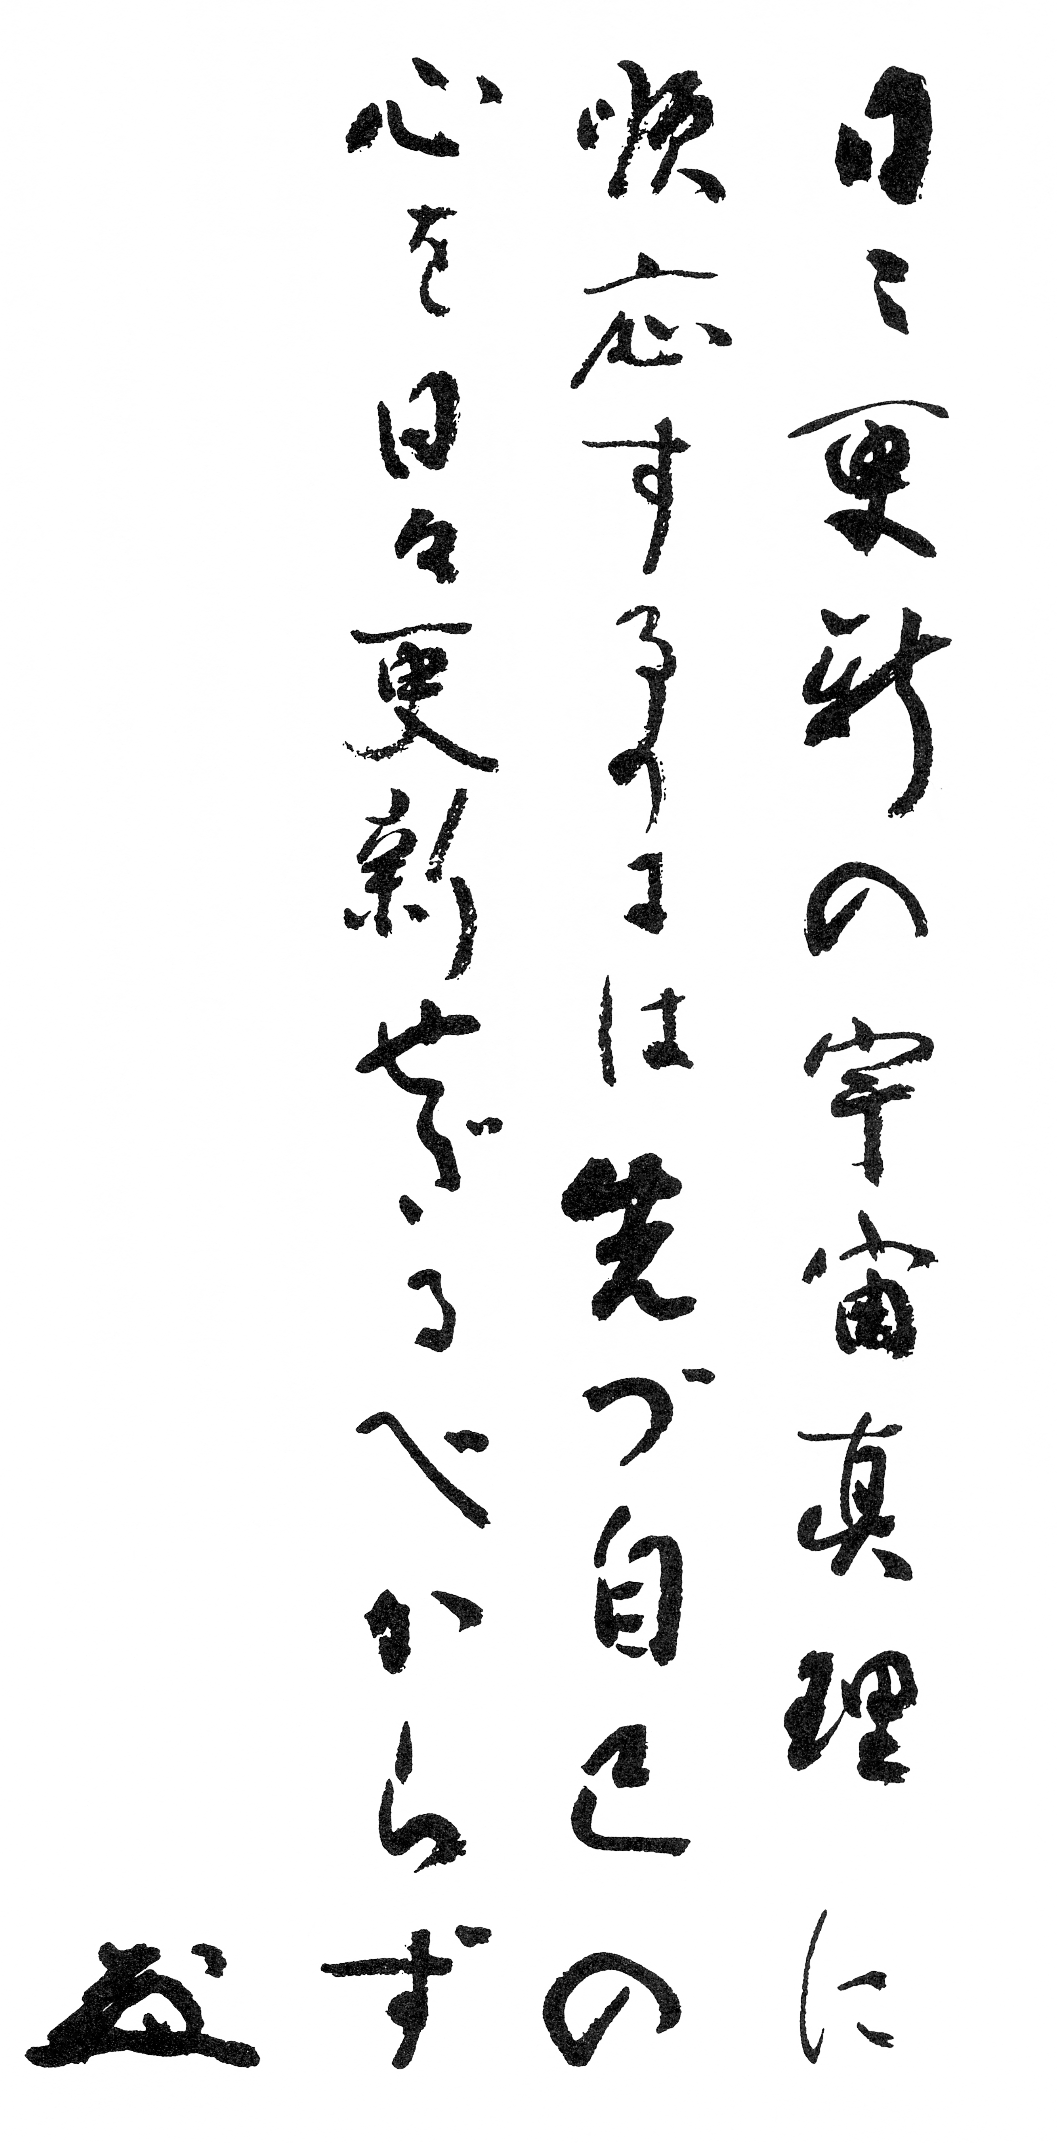 日々更新の宇宙真理に
順応するのには先づ自己の
心を日々更新せざるべからず